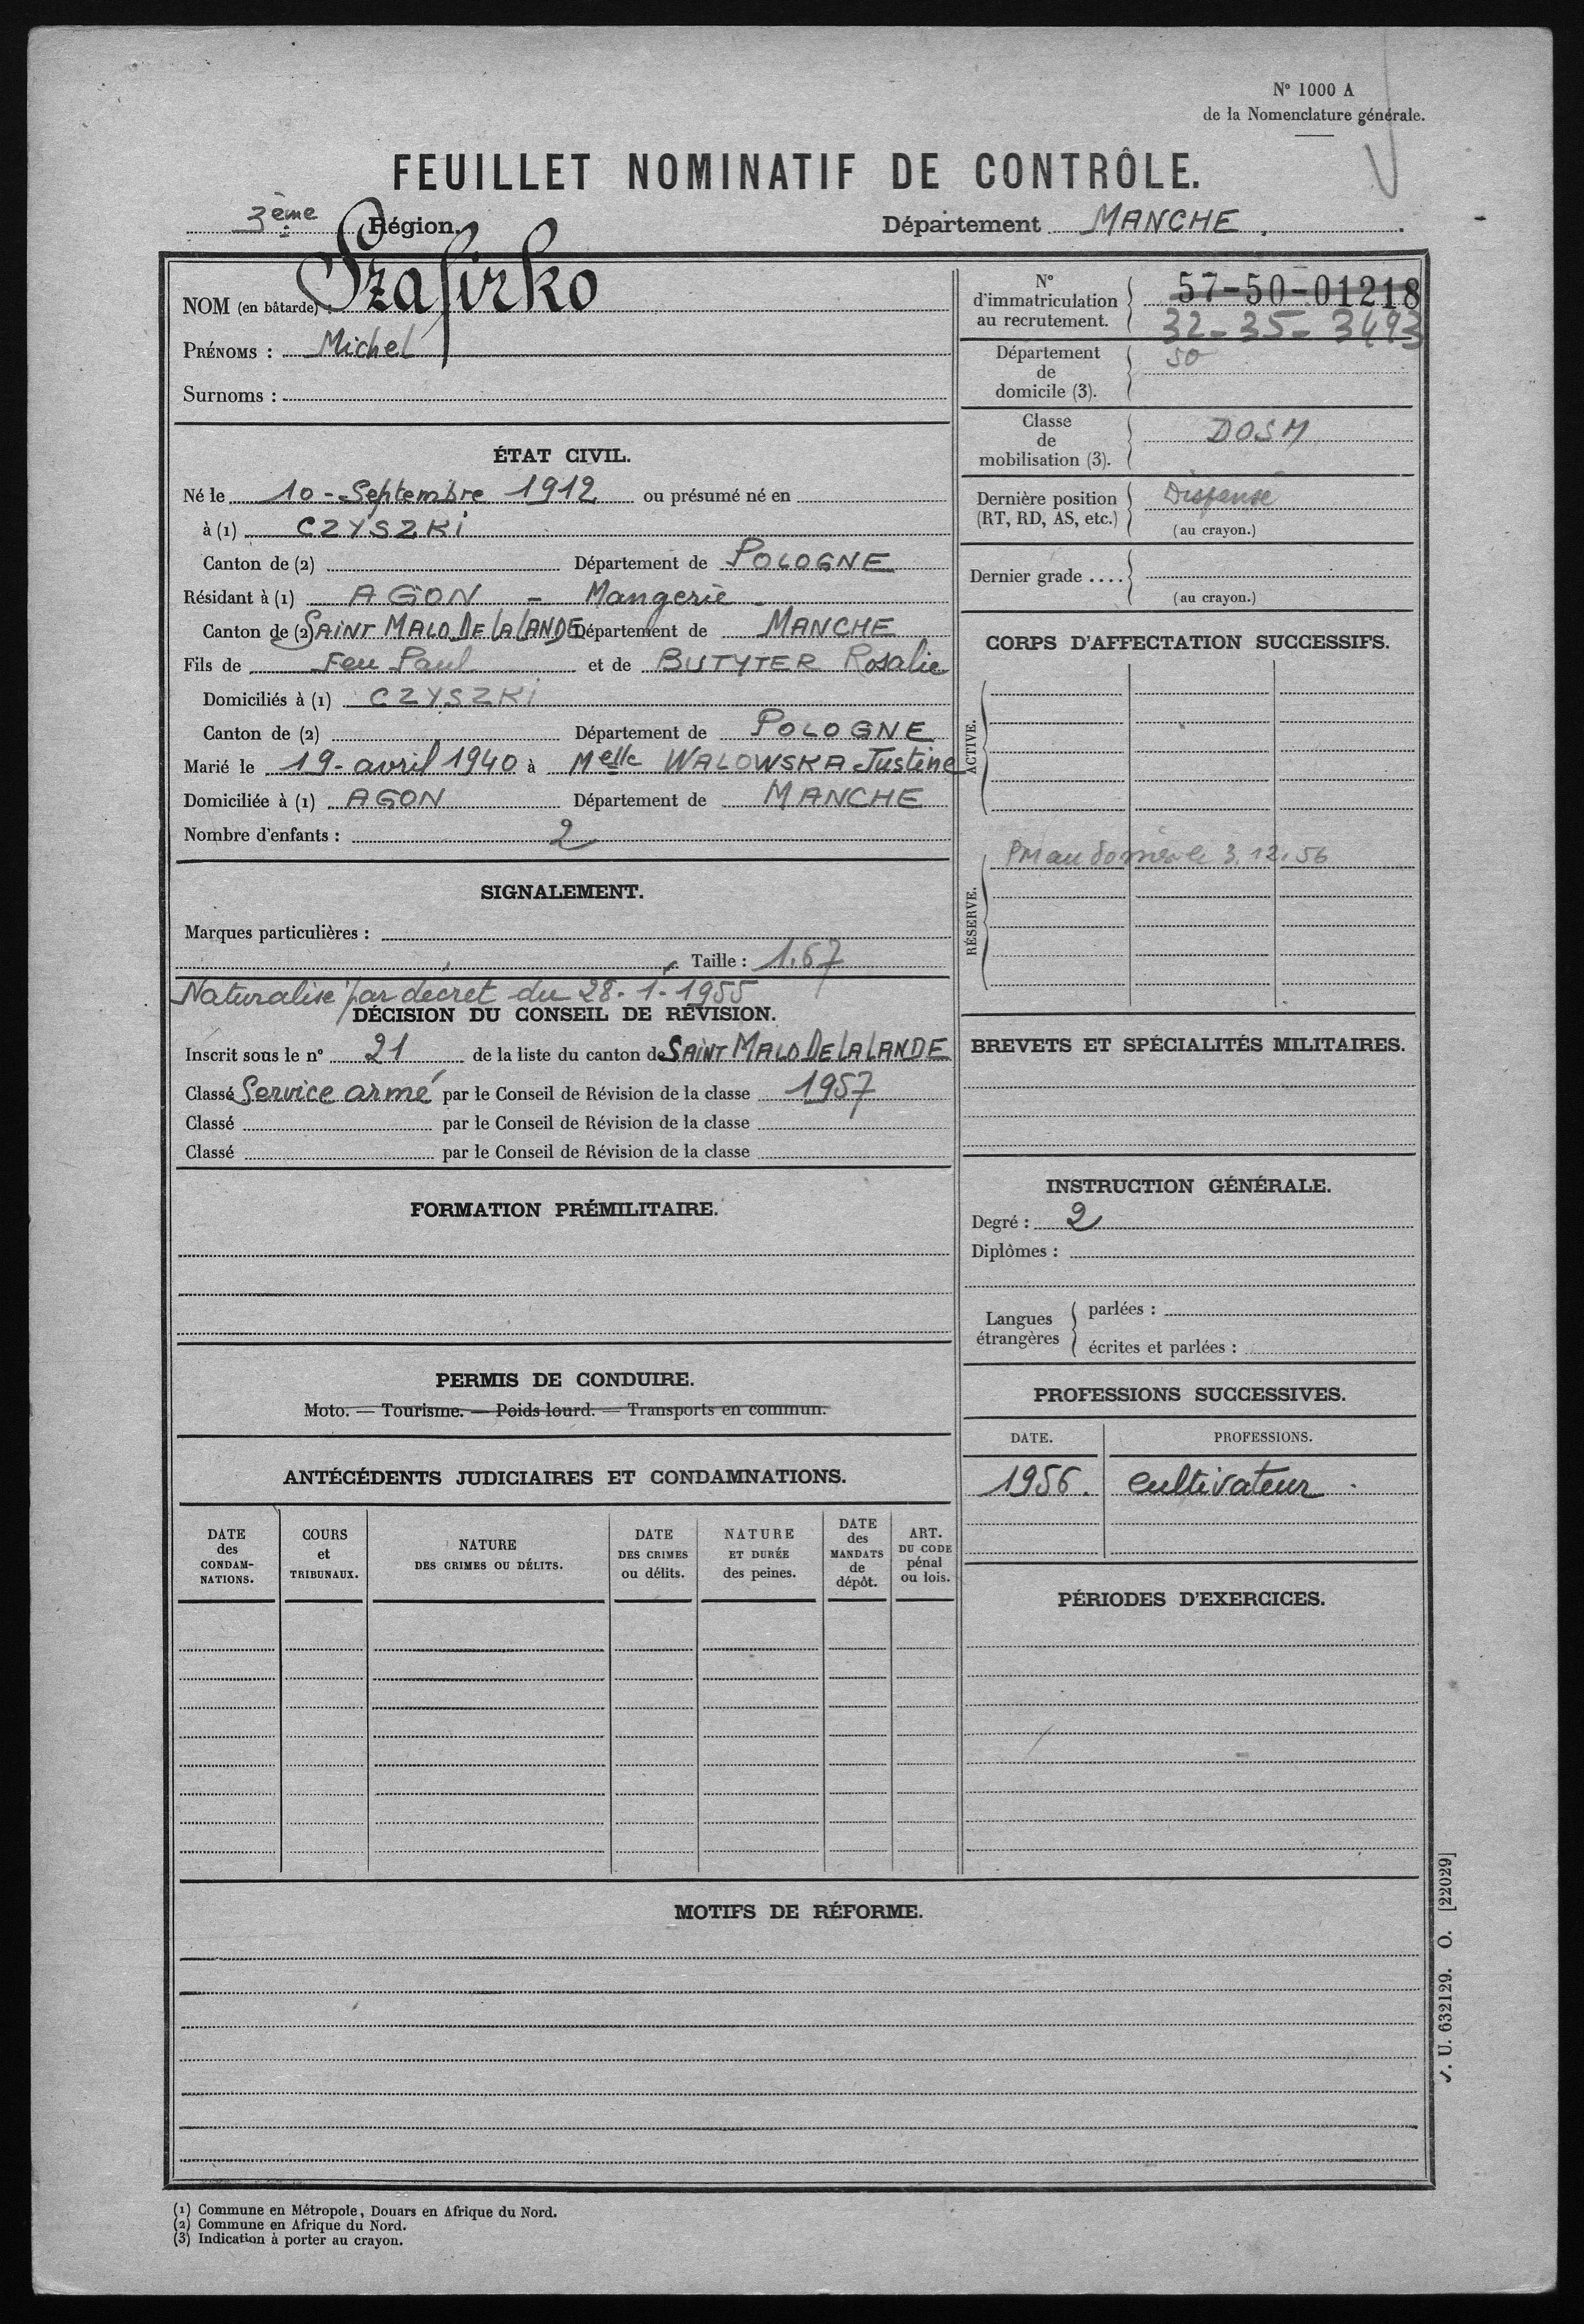 N° 1000 A
de la Nomenclature générale.
FEUILLET NOMINATIF DE CONTRÔLE.
3ème Région. Département MANCHE.
NOM (en bâtarde) : Szafirko
PRÉNOMS : Michel
Surnoms :
ÉTAT CIVIL.
Né le 10 - Septembre 1912 ou présumé né en
à (1) CZYSZKI
Canton de (2) Département de POLOGNE
Résidant à (1) AGON - Mangerie
Canton de (2) SAINT MALO DE LA LANDE Département de MANCHE
Fils de Feu Paul et de BUTYTER Rosalie
Domiciliés à (1) CZYSZKI
Canton de (2) Département de POLOGNE
Marié le 19 - avril 1940 à Melle WALOWSKA Justine
Domiciliée à (1) AGON Département de MANCHE
Nombre d'enfants : 2
SIGNALEMENT.
Marques particulières :
Taille : 1.67
Naturalisé par décret du 28-1-1955
DÉCISION DU CONSEIL DE RÉVISION.
Inscrit sous le n° 21 de la liste du canton de SAINT MALO DE LA LANDE
Classé Service armé par le Conseil de Révision de la classe 1957
Classé par le Conseil de Révision de la classe
Classé par le Conseil de Révision de la classe
FORMATION PRÉMILITAIRE.
PERMIS DE CONDUIRE.
Moto. — Tourisme. — Poids lourd. — Transports en commun.
ANTÉCÉDENTS JUDICIAIRES ET CONDAMNATIONS.
DATE des CONDAM-NATIONS.
COURS et TRIBUNAUX.
NATURE DES CRIMES OU DÉLITS.
DATE DES CRIMES ou délits.
NATURE ET DURÉE des peines.
DATE des MANDATS de dépôt.
ART. DU CODE pénal ou lois.
N° d'immatriculation au recrutement. 57-50-01218
32-35-3493
Département de domicile (3). 50
Classe de mobilisation (3). DOSM
Dernière position (RT, RD, AS, etc.) Dispensé
(au crayon.)
Dernier grade ....
(au crayon.)
CORPS D'AFFECTATION SUCCESSIFS.
ACTIVE.
RÉSERVE.
3.12.56
BREVETS ET SPÉCIALITÉS MILITAIRES.
INSTRUCTION GÉNÉRALE.
Degré : 2
Diplômes :
Langues étrangères
parlées :
écrites et parlées :
PROFESSIONS SUCCESSIVES.
DATE. PROFESSIONS.
1956. cultivateur.
PÉRIODES D'EXERCICES.
MOTIFS DE RÉFORME.
(1) Commune en Métropole, Douars en Afrique du Nord.
(2) Commune en Afrique du Nord.
(3) Indication à porter au crayon.
J. U. 632129. O. [22029]